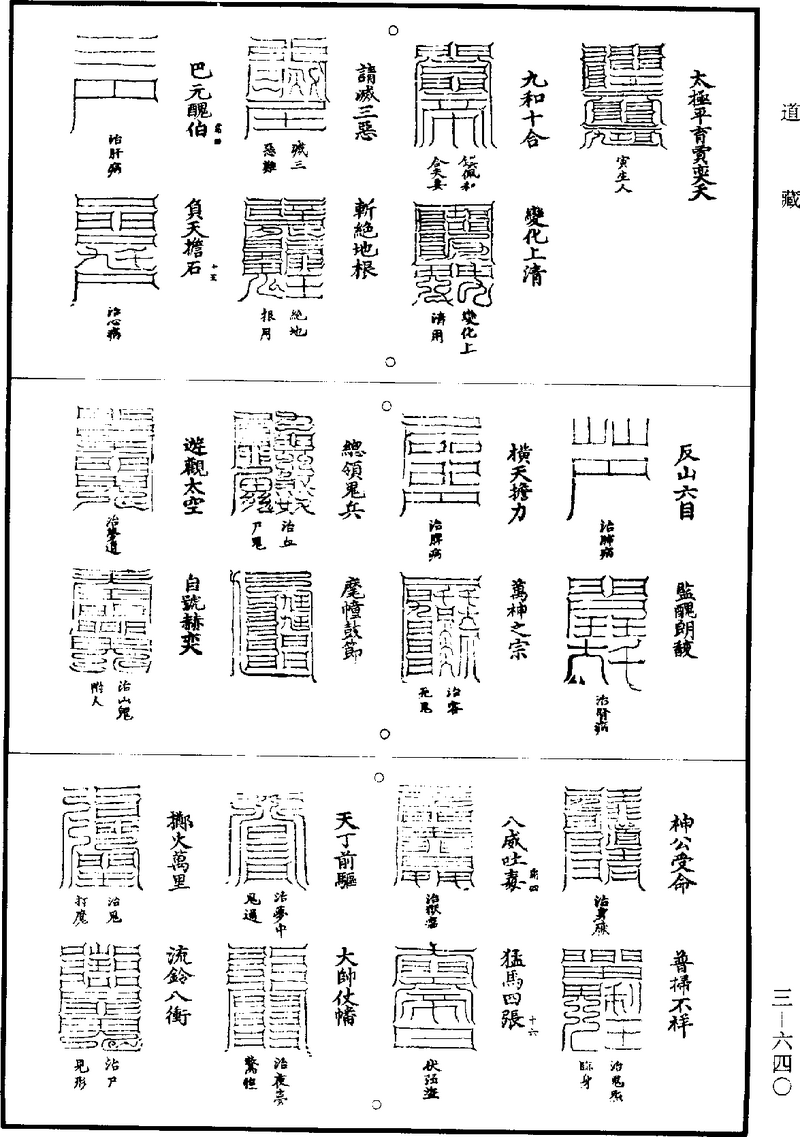 道藏
太極平育賈奕天
寅生人
九和十合
合夫妻
變化上清
變化上
清用
請滅三惡
滅三
惡難
斬絕地根
絕地
根用
巴元醜伯
第四
治肝病
負天擔石
十五
治心病
反山六目
治肺病
監醜朗馥
治腎病
橫天擔力
治脾病
萬神之宗
治客
死鬼
總領鬼兵
治血
尸鬼
麾幢鼓節
遊觀太空
自號赫奕
治山鬼
附人
神公受命
普掃不祥
八威吐毒
第四
猛馬四張
十六
伏強盜
天丁前驅
治夢中
鬼通
大帥仗幡
治夜夢
驚怪
擲火萬里
治鬼
打魔
流鈴八衝
治尸
見形
三—六四〇